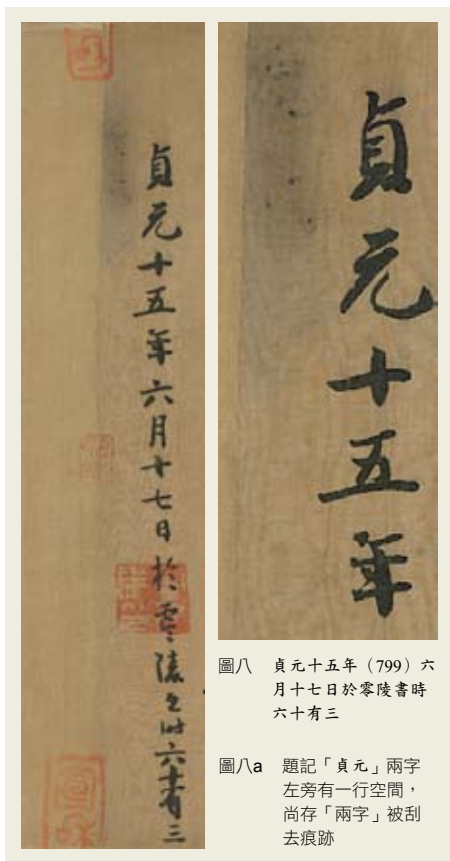 貞元十五年六月十七日於零陵書時六十有三
貞元十五年
圖八 貞元十五年（799）六
月十七日於零陵書時
六十有三
圖八a 題記「貞元」兩字
左旁有一行空間，
尚存「兩字」被刮
去痕跡